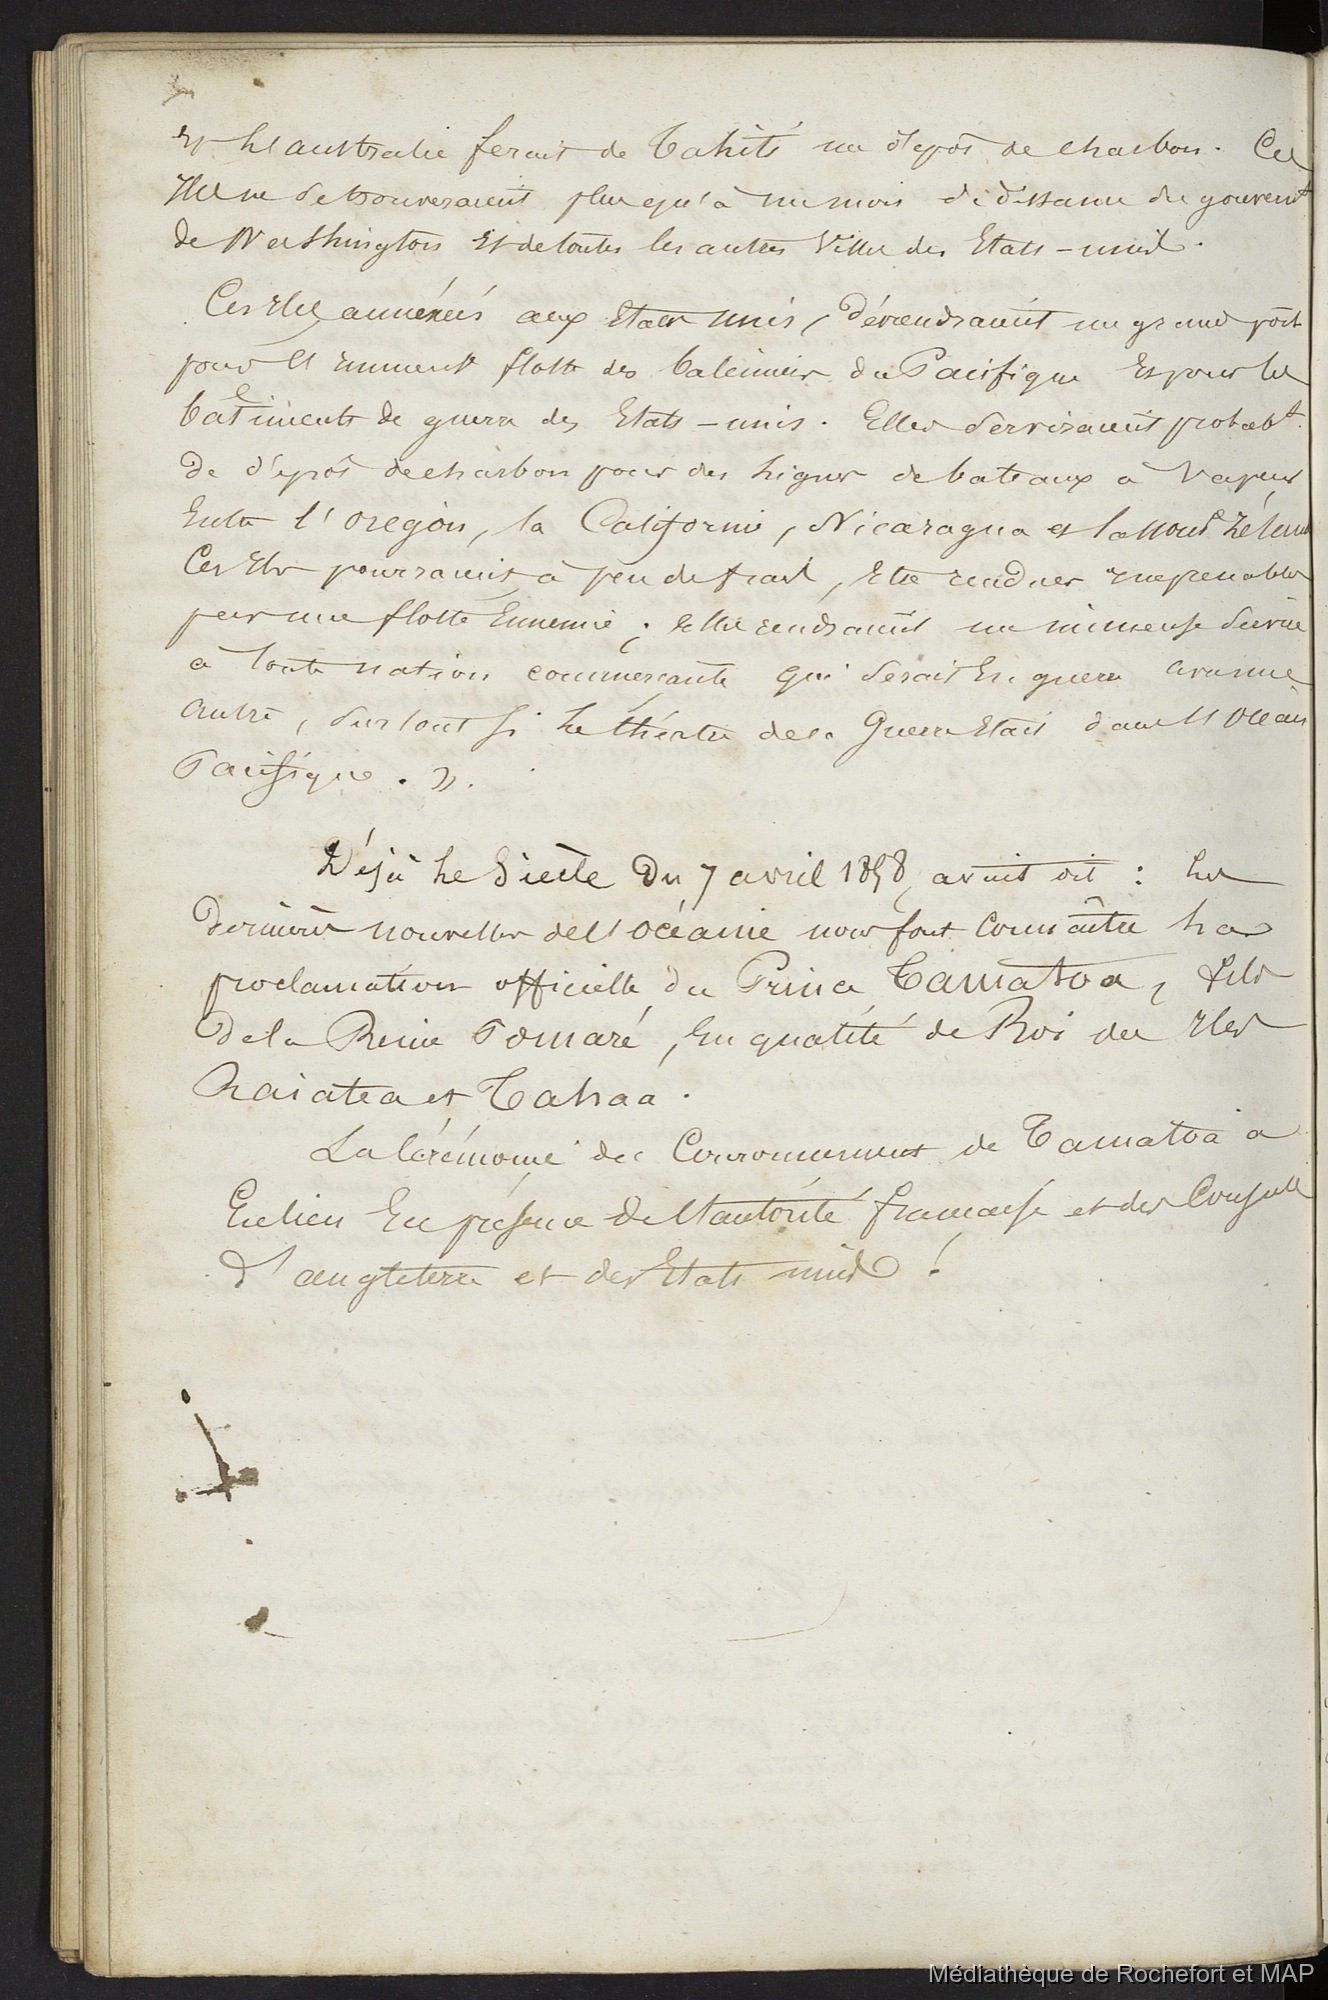 et l'australie ferait de Tahiti un dépôt de charbon. Ces
Iles ne se trouveraient plus qu'à un mois de distance du gouvernt
de Washington et de toutes les autres Villes des Etats-unis.
Ces Iles annéxées aux Etats unis, déviendraient un grand port
pour l'immense flotte des baleiniers du Pacifique et pour les
batiments de guerre des Etats-unis. Elles serviraient probablt
de dépôt de charbon pour des lignes de bateaux à vapeur
Entre l'Orégon, la Californie, Nicaragua et la nouvle Zélande
Ces Iles pourraient, à peu de frais, etre rendues imprenables
par une flotte Ennemie; elles rendraient un immense Service
à toute nation commerçante qui serait En guerre avec une
autre, surtout si le théatre de la Guerre était dans l'Océan
Pacifique. ».
Déjà le Siècle du 7 avril 1858, avait dit : les
dernières nouvelles de l'océanie nous font connaître la
proclamation officielle du Prince Tamatoa, fils
de la Reine Pomaré, En qualité de Roi des Iles
Raiatea et Tahaa.
La Cérémonie du Couronnement de Tamatoa a
Eu lieu En présence de l'autorité française et des Consuls
d'angleterre et des Etats unis !
Médiathèque de Rochefort et MAP